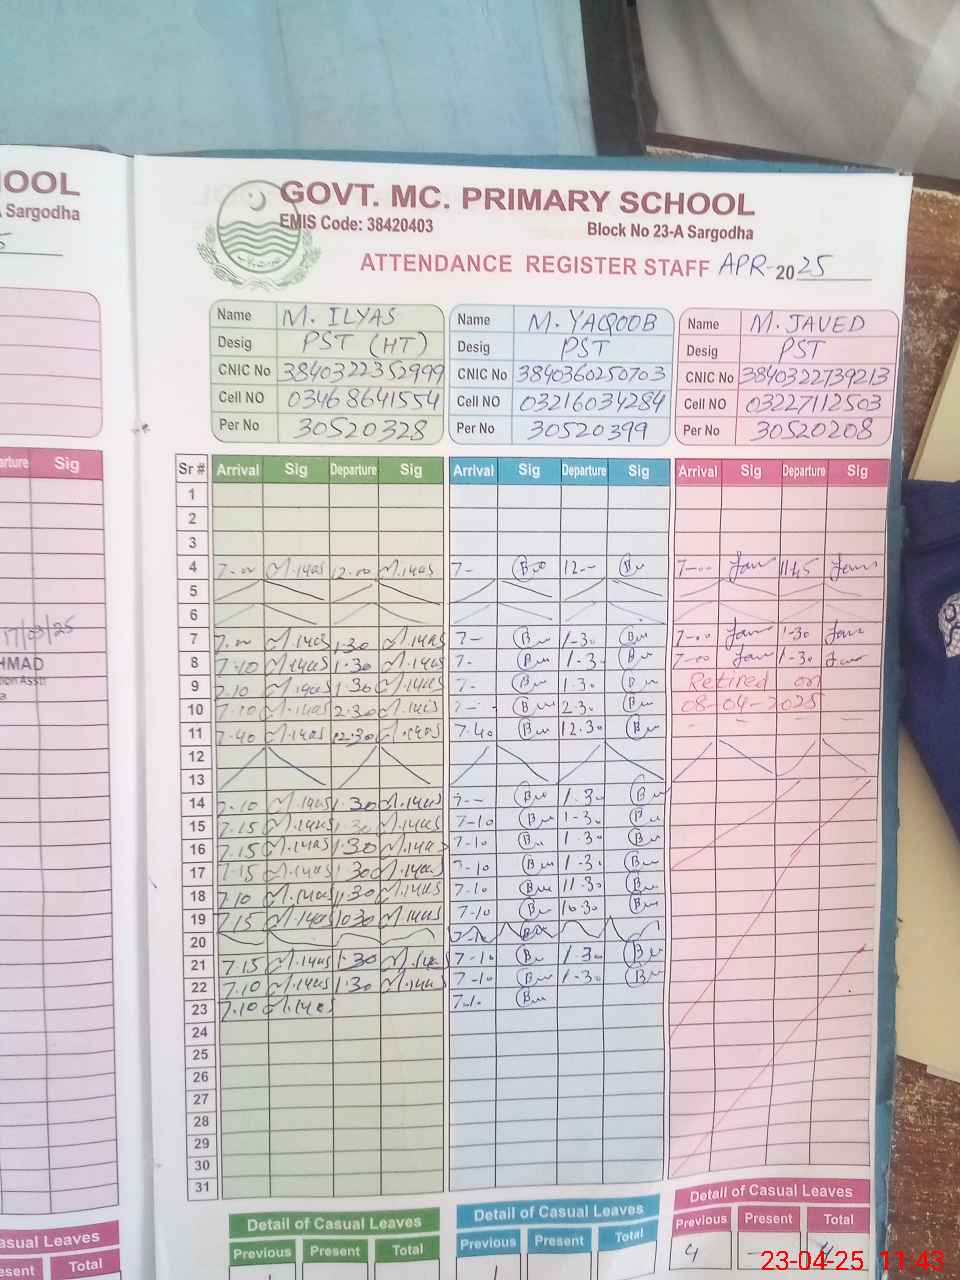 HOOL
A Sargodha
GOVT. MC. PRIMARY SCHOOL
EMIS Code: 38420403
Block No 23-A Sargodha
ATTENDANCE REGISTER STAFF APR-2025
Name M. ILYAS
Desig PST (HT)
CNIC No 3840322352999
Cell NO 03468641554
Per No 30520328
Name M. YAQOOB
Desig PST
CNIC No 3840360250703
Cell NO 03216034284
Per No 30520399
Name M. JAVED
Desig PST
CNIC No 3840322739213
Cell NO 03227112503
Per No 30520208
arture Sig
Sr # Arrival Sig Departure Sig Arrival Sig Departure Sig Arrival Sig Departure Sig
1
2
3
4 7-00 M.Ilyas 12-00 M.Ilyas 7- 12-- 7-00 11-45
5
6
7 7-00 M.Ilyas 1-30 M.Ilyas 7- 1-30 7-00 1-30
17/03/25
8 7.10 M.Ilyas 1.30 M.Ilyas 7- 1-3. 7-00 1-30
HMAD
tion Asstt
9 7.10 M.Ilyas 1.30 M.Ilyas 7- 1.30 Retired on
10 7.10 M.Ilyas 2.30 M.Ilyas 2.30 08-04-2025
11 7.40 M.Ilyas 12.30 M.Ilyas 7.40 12.30
12
13
14 7.10 M.Ilyas 1.30 M.Ilyas 7-- 1.30
15 7.15 M.Ilyas 1.30 M.Ilyas 7-10 1-30
16 7.15 M.Ilyas 1.30 M.Ilyas 7-10 1.30
17 7.15 M.Ilyas 1.30 M.Ilyas 7-10 1-30
18 7.10 M.Ilyas 1.30 M.Ilyas 7-10 11.30
19 7.15 M.Ilyas 1030 M.Ilyas 7-10 10.30
20
21 7.15 M.Ilyas 1.30 M.Ilyas 7-10 1.30
22 7.10 M.Ilyas 1.30 M.Ilyas 7-10 1-30
23 7.10 M.Ilyas 7-10
24
25
26
27
28
29
30
31
asual Leaves
esent Total
Detail of Casual Leaves
Previous Present Total
Detail of Casual Leaves
Previous Present Total
Detail of Casual Leaves
Previous Present Total
4 - 4
23-04-25 11:43